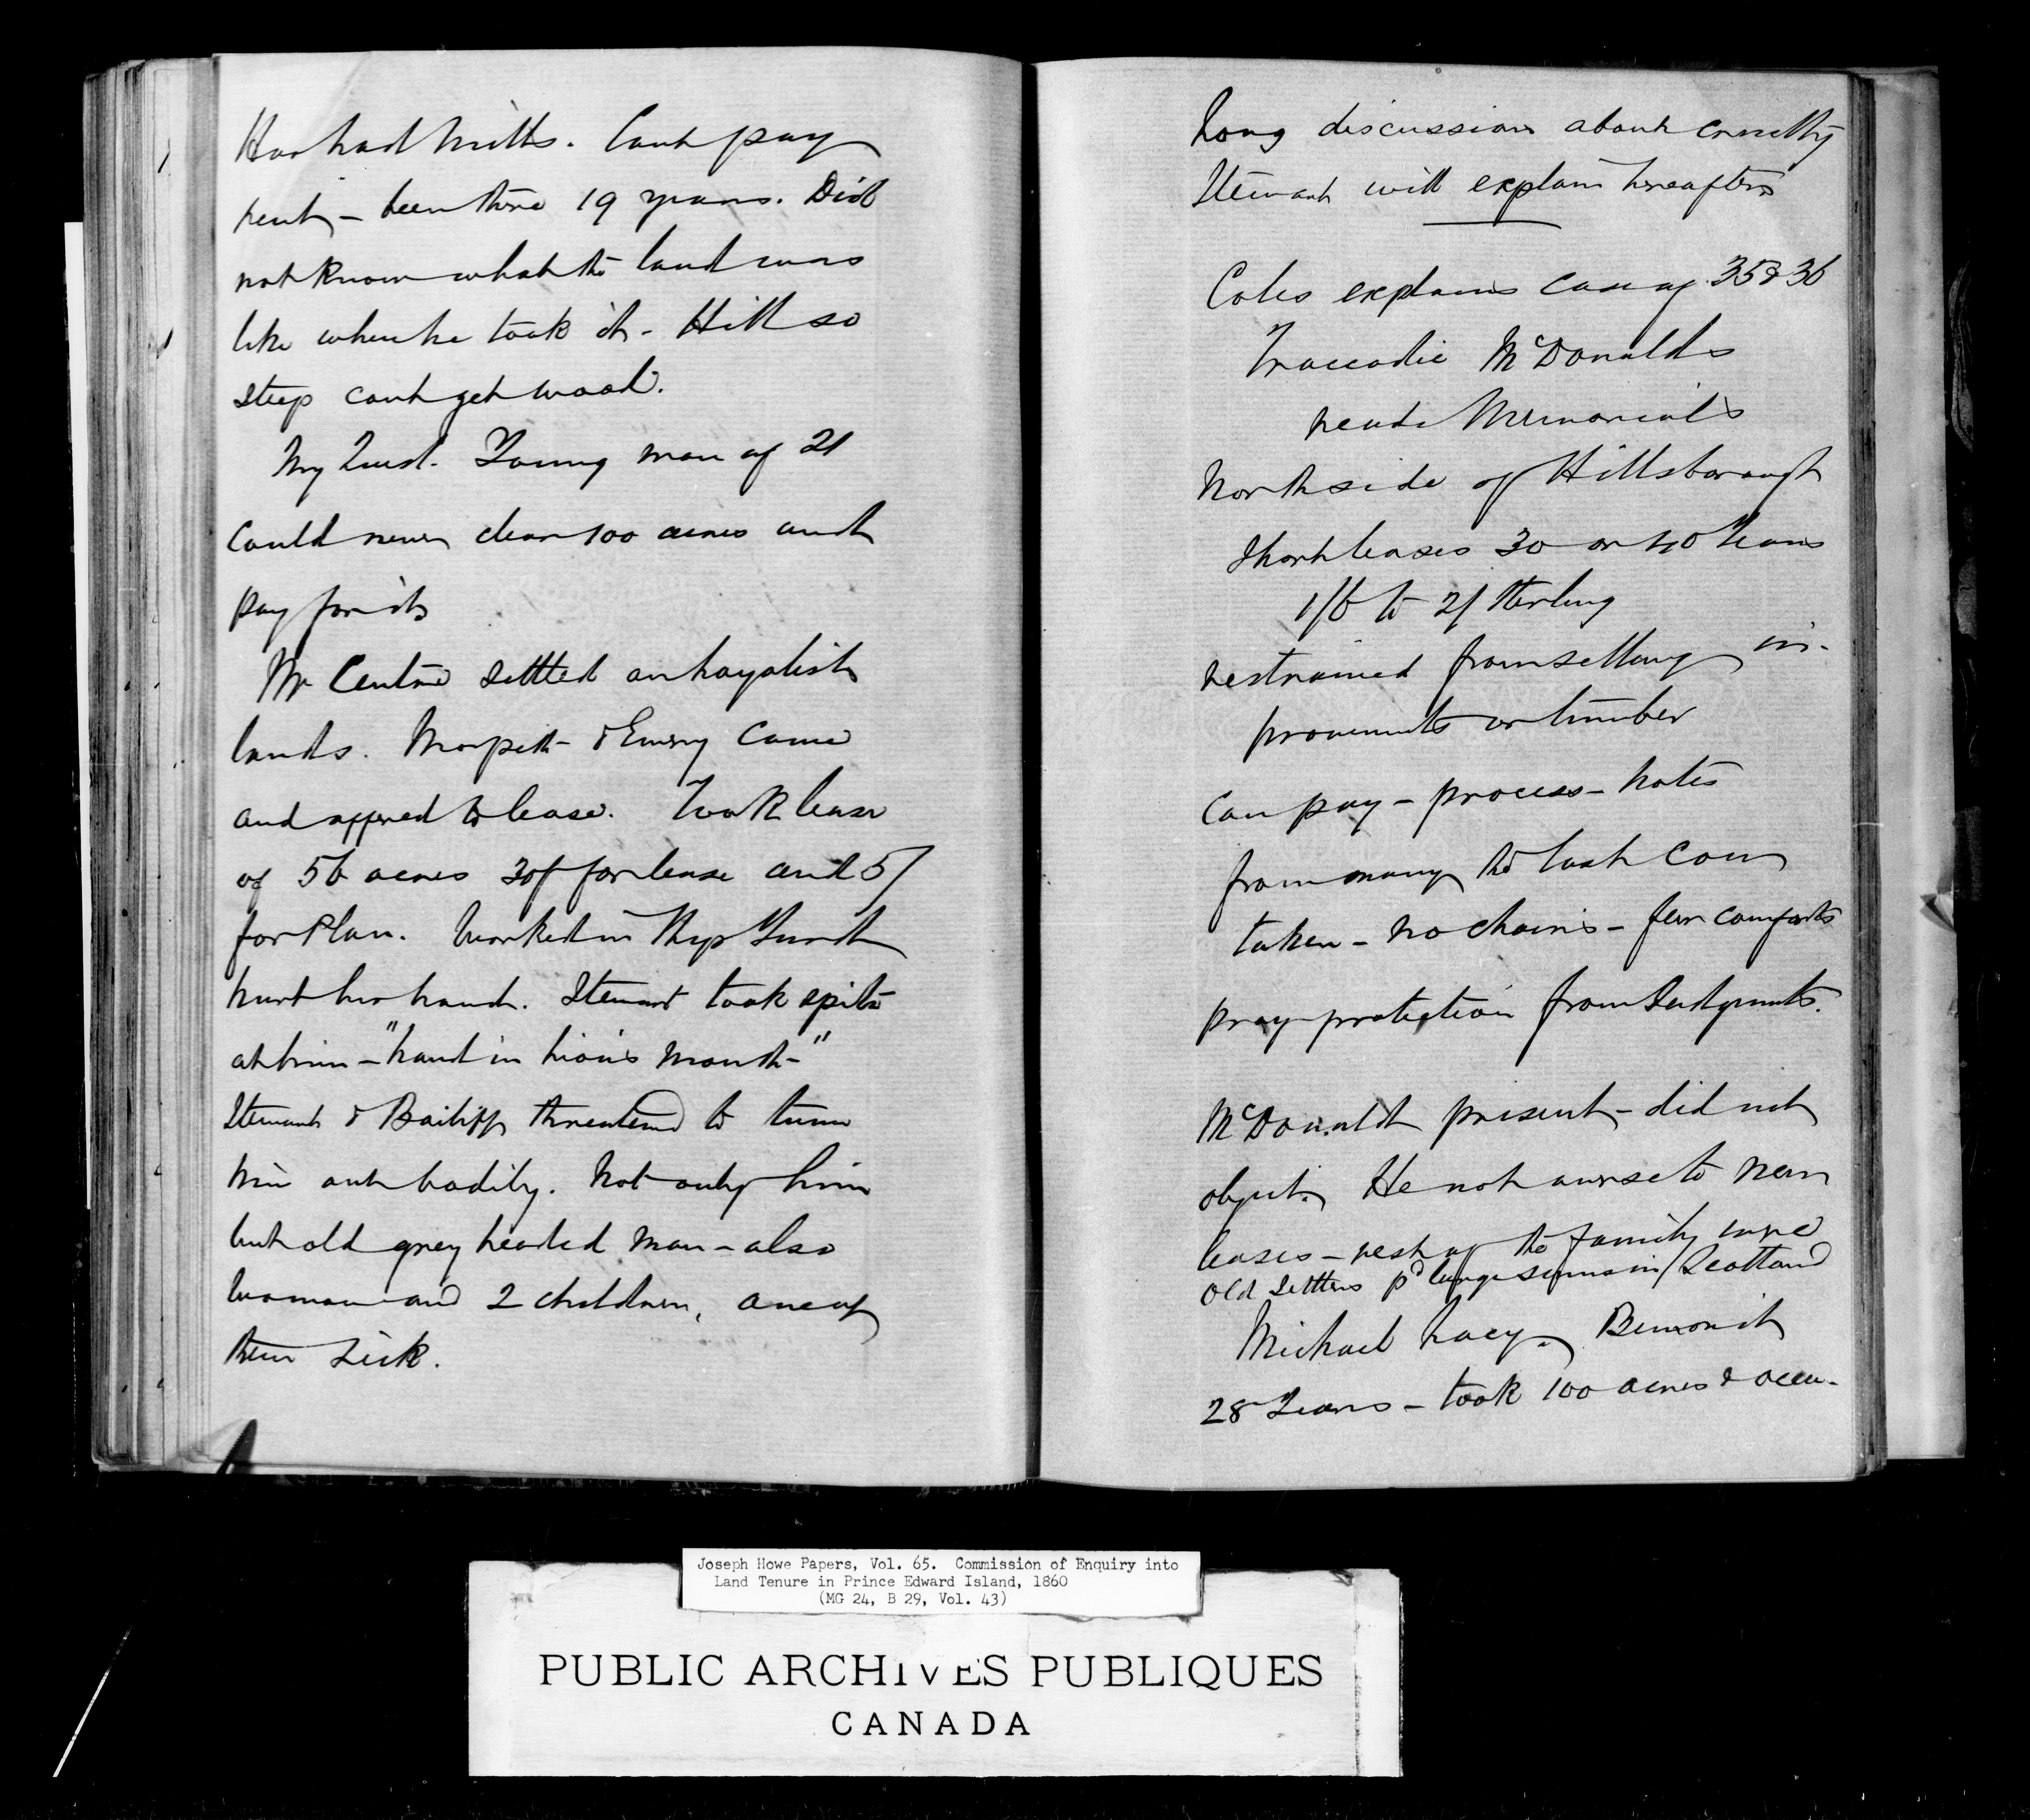 Has had Mills. Cant pay
rent – been there 19 years. Did
not know what the land was
like when he took it – Hill so
steep cant get wood.
My Quest. Young man of 21
could never clear 100 acres and
pay for it
Mr Centre settled on Loyalist
lands. Morpeth & Emery came
and offered to lease. Took lease
of 56 acres 30/ for lease and 5/
for Plan. Worked in Ship
hurt his hand. Stewart took spite
at him – "hand in lion's mouth –"
Stewart & Bailiff threatened to turn
him out bodily. Not only him
but old grey headed man – also
woman and 2 children, one of
them sick.
Long discussion about cruelty
Stewart will explain hereafter
Coles explains case of 35 & 36
Traccadie McDonalds
reads Memorials
North side of Hillsborough
Short leases 30 or 40 Years
1/6 to 2/ Sterling
restrained from selling im-
provements or timber
Can pay – process – notes
from many the last cow
taken – no chairs – few comforts
pray protection from Judgments.
McDonald present – did not
object. He not averse to new
leases – rest of the family were
old settlers pd large sums in Scotland
Michael Lacy.
28 Years – took 100 acres & occu-
Joseph Howe Papers, Vol. 65. Commission of Enquiry into
Land Tenure in Prince Edward Island, 1860
(MG 24, B 29, Vol. 43)
PUBLIC ARCHIVES PUBLIQUES
CANADA